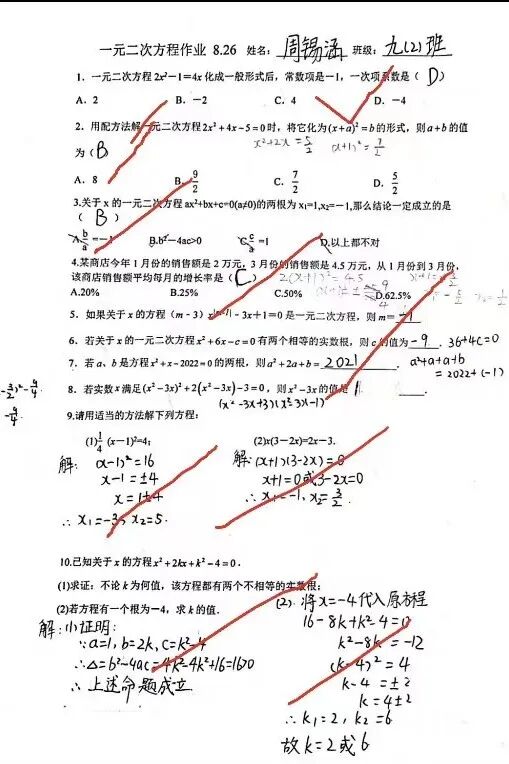 一元二次方程作业 8.26 姓名: 周锡涵 班级: 九(2)班
1. 一元二次方程2x²－1=4x化成一般形式后，常数项是－1，一次项系数是（ D ）
A. 2 B. －2 C. 4 D. －4
2. 用配方法解一元二次方程2x²+4x－5=0时，将它化为(x+a)²=b的形式，则a+b的值
为（ B ） x²+2x=5/2 (x+1)²=7/2
A. 8 B. 9/2 C. 7/2 D. 5/2
3.关于x的一元二次方程ax²+bx+c=0(a≠0)的两根为x₁=1,x₂=－1,那么结论一定成立的是
（ B ）
A. b/a=－1 B.b²－4ac>0 C. c/a=1 D.以上都不对
4.某商店今年1月份的销售额是2万元，3月份的销售额是4.5万元，从1月份到3月份，
该商店销售额平均每月的增长率是（ C ） 2(x+1)²=4.5
A.20% B.25% C.50% D.62.5%
5. 如果关于x的方程(m－3)x^|m－1|－3x+1=0是一元二次方程，则m= －1
6. 若关于x的一元二次方程x²+6x－c=0有两个相等的实数根，则c的值为 －9 . 36+4c=0
7. 若a、b是方程x²+x－2022=0的两根，则a²+2a+b= 2021 . a²+a+a+b
=2022+(－1)
8. 若实数x满足(x²－3x)²+2(x²－3x)－3=0，则x²－3x的值是 1 .
(x²－3x+3)(x²－3x－1)
9.请用适当的方法解下列方程:
(1)1/4(x－1)²=4; (2)x(3－2x)=2x－3.
解: (x－1)²=16 解: (x+1)(3－2x)=0
x－1=±4 x+1=0或3－2x=0
x=1±4 ∴x₁=－1, x₂=3/2.
∴x₁=－3, x₂=5.
10.已知关于x的方程x²+2kx+k²－4=0.
(1)求证: 不论k为何值，该方程都有两个不相等的实数根;
(2)若方程有一个根为－4，求k的值.
解:(1)证明:
∵a=1, b=2k, c=k²－4
∴△=b²－4ac=4k²－4k²+16=16>0
∴上述命题成立
(2) 将x=－4代入原方程
16－8k+k²－4=0
k²－8k=－12
(k－4)²=4
k－4=±2
k=4±2
∴k₁=2, k₂=6
故k=2或6